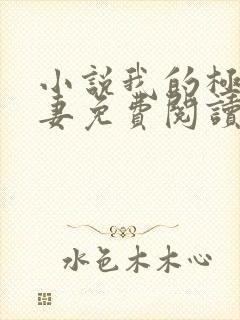 小說我的極
妻免費閱讀
水色木木心